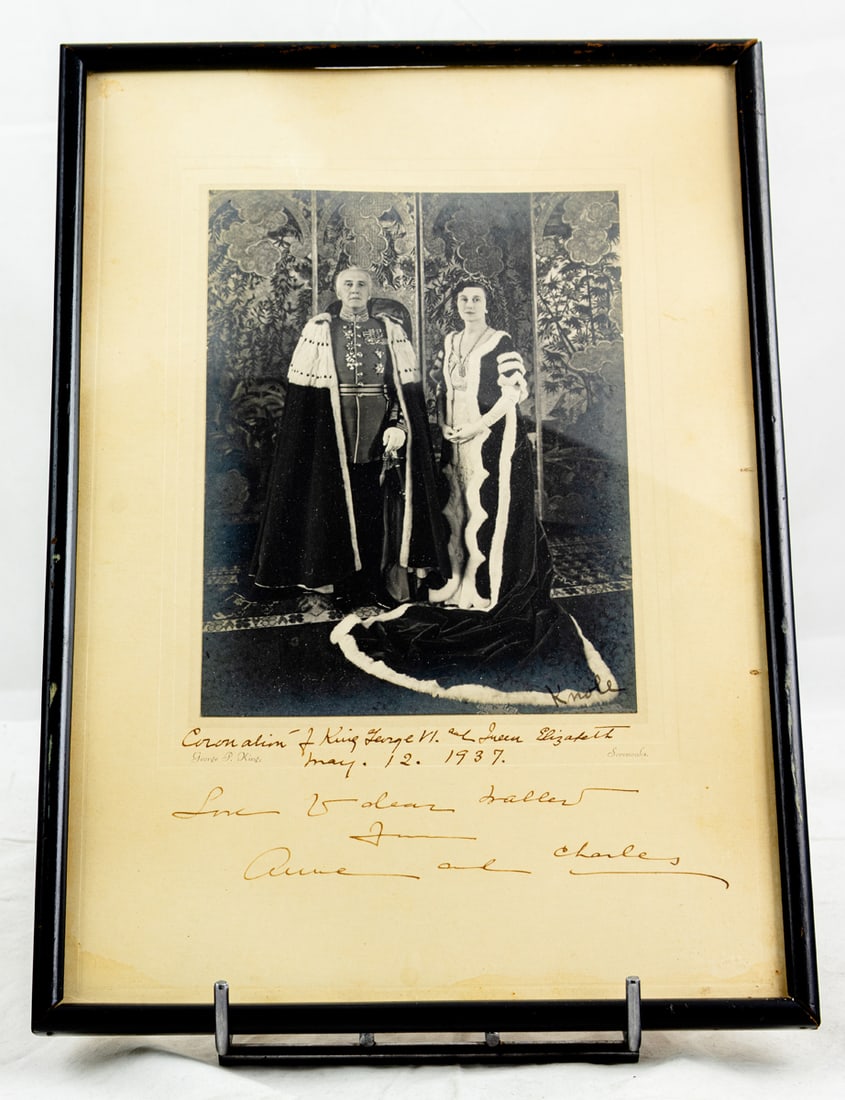 Knole
Coronation of King George VI. and Queen Elizabeth
George P. King. Sevenoaks.
May. 12. 1937.
Love to dear Walter
From
Anne and Charles